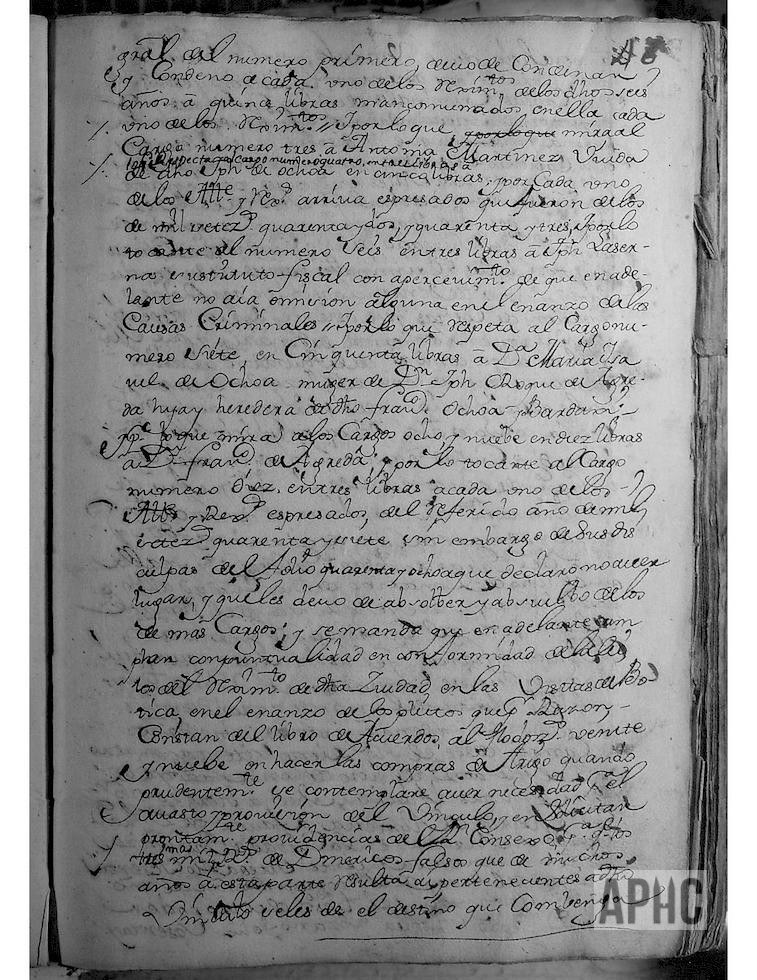 48
gral del numero primero, devo de Condenar
y Condeno a cada uno de los Rexim.tos de los dhos seis
años â quince libras mancomunados en ella cada
uno de los Rexim.tos // Y por lo que mira al
Cargo numero tres â Antonia Martinez Viuda
lo q.e respecta al Cargo numero quatro, en tres libras â
de dho Jph de Ochoa en cinco libras; y por Cada uno
de los Alc.e y Rex.s arriva espresados que fueron de los
de mil setez.s quarenta y dos, y quarenta y tres, y por lo
tocante al numero seis en tres libras â Jph Laser-
na sustituto fiscal con apercevim.to de que en ade-
lante no aia omision alguna en el de las
Causas Criminales // y por lo que respeta al Cargo nu-
mero siete, en Cinquenta libras â D.a Maria Isa
vel de Ochoa muger de D.n Jph de Agre-
da hija y heredera de dho fran.co Ochoa y
y p.r lo que mira a los Cargos ocho, y nuebe en diez libras
a D.n fran.co de Agreda; y por lo tocante al Cargo
numero diez, en tres libras a cada uno de los
Alc.e y Rex.s espresados, del referido año de mil
setez.s quarenta y siete sin embargo de sus dis
culpas del quarenta y ocho a que declaro no aver
lugar, y que les devo de absolber y absuelbo de los
de mas Cargos; y se manda que en adelante cum
plan con puntualidad en conformidad de
del Rexim.to de dha Ziudad, en las Visitas de Bo-
tica, en el de los pleitos que p.r Razon,
Constan del libro de Acuerdos, al veinte
y nuebe en hacer las compras de trigo quando
prudentem.te se contemplare aver necesidad p.a el
avasto y provision del Vinculo, y en solicitar
prontam.te providencias de el R.l Consexo p.a q.e los
mas de Dinericos falsos que de muchos
años â esta parte resulta aver pertenecientes a dho
Vinculo se les de el destino que Combenga
APHC